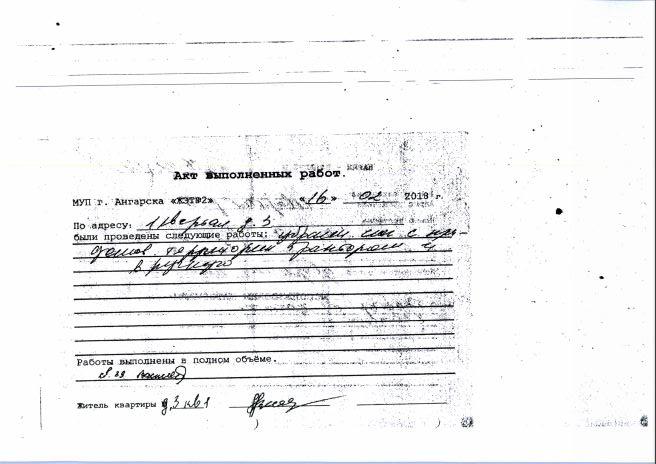 Акт выполненных работ.
МУП г. Ангарска «ЖЭТ№2» «16» 02 2018 г.
По адресу: 1 квартал д. 3
были проведены следующие работы: убрали снег с при-
домов. территории трактором и
вручную
Работы выполнены в полном объёме.
Житель квартиры д.3 кв 1